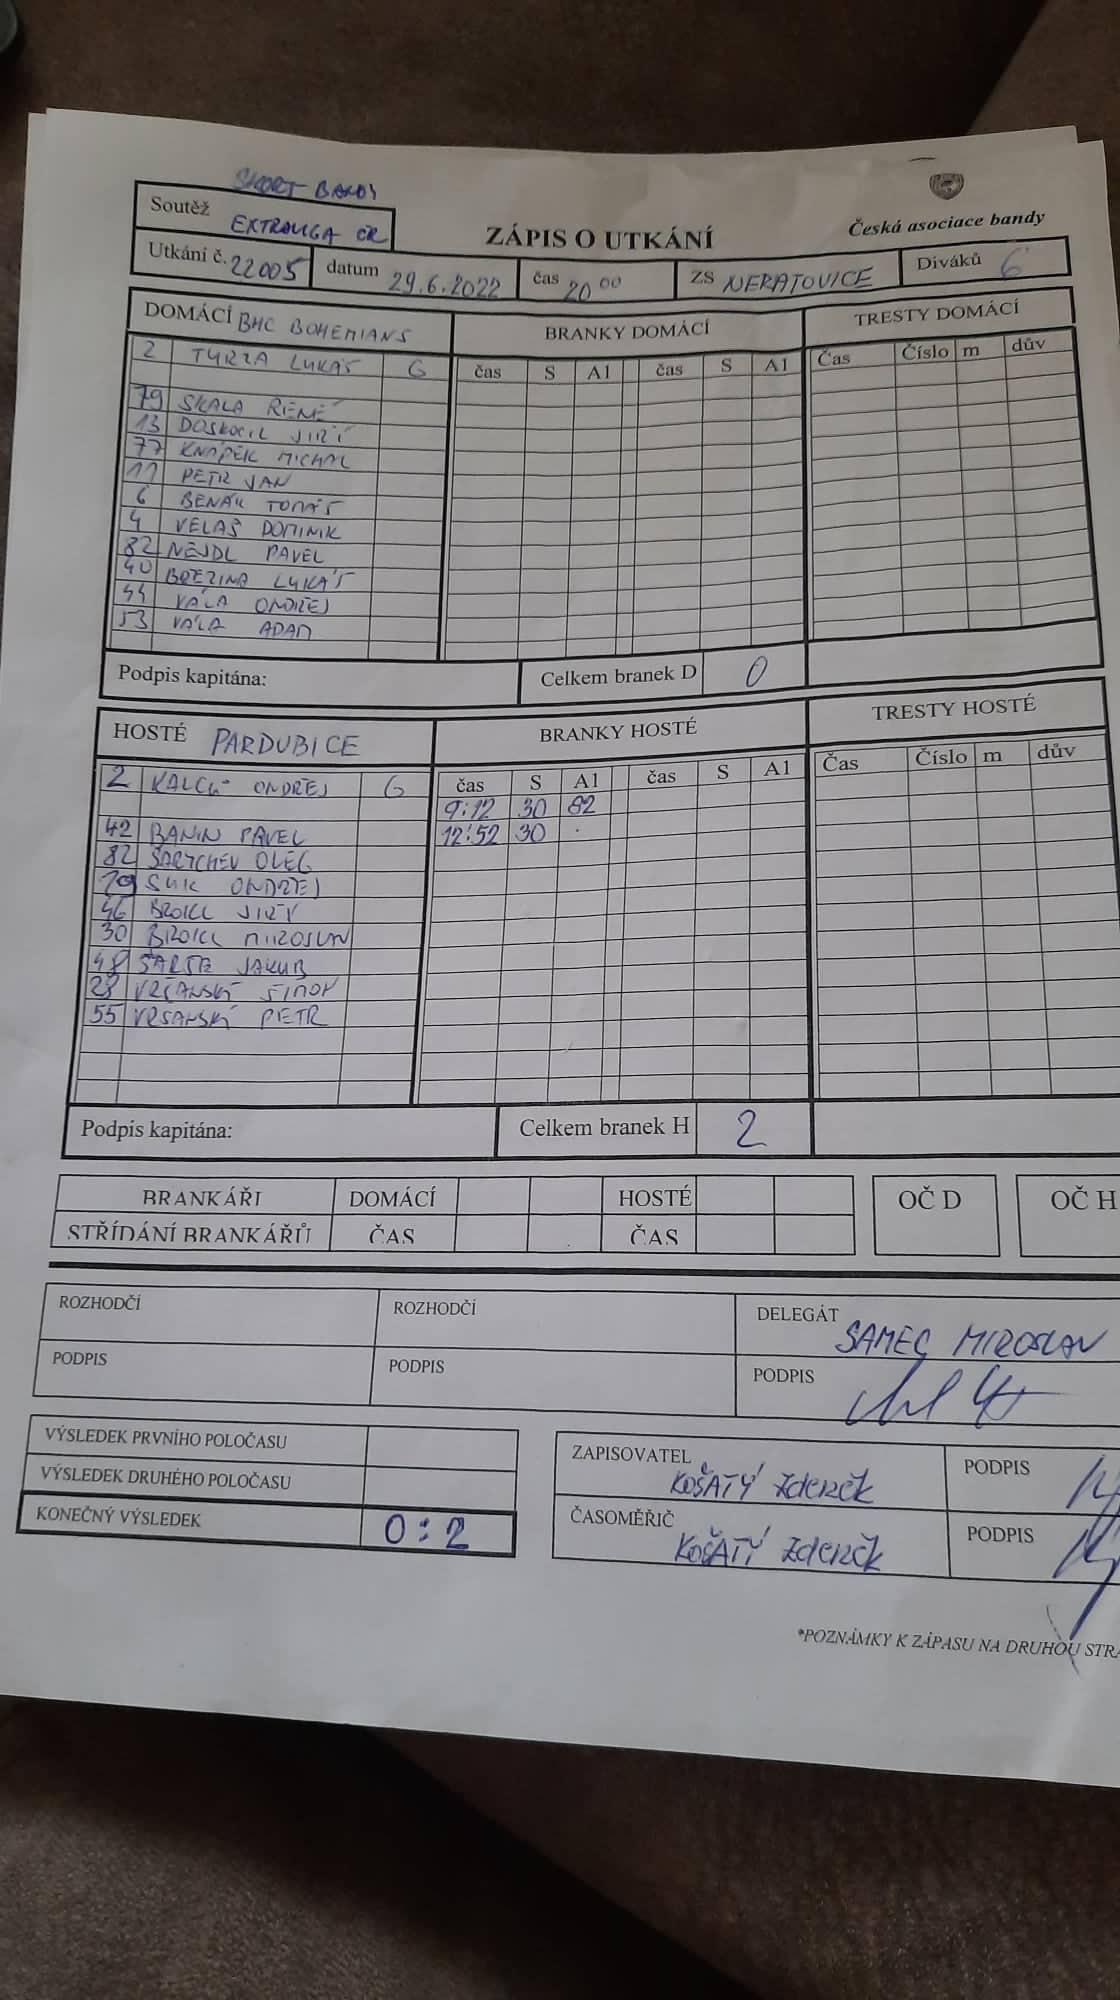 SHORT BANDY
Soutěž EXTRALIGA ČR
ZÁPIS O UTKÁNÍ
Česká asociace bandy
Utkání č. 22005 datum 29.6.2022 čas 20 00 ZS NERATOVICE Diváků 6
DOMÁCÍ BHC BOHEMIANS BRANKY DOMÁCÍ TRESTY DOMÁCÍ
2 TURZA LUKÁŠ G čas S A1 čas S A1 Čas Číslo m dův
79 SKALA RENÉ
13 DOSKOCIL JIŘÍ
77 KNÁPEK MICHAL
11 PETR JAN
6 BENÁK TOMÁŠ
4 VELAS DOMINIK
82 NEJDL PAVEL
40 BŘEZINA LUKÁŠ
44 VÁLA ONDŘEJ
53 VÁLA ADAM
Podpis kapitána: Celkem branek D 0
HOSTÉ PARDUBICE BRANKY HOSTÉ TRESTY HOSTÉ
2 ONDŘEJ G čas S A1 čas S A1 Čas Číslo m dův
9:12 30 82
42 BANIN PAVEL 12:52 30
82 SARYCHEV OLEG
SUK ONDŘEJ
46 BROKL JIŘÍ
30 BROKL MIROSLAV
48 JAKUB
28 VRŠANSKÝ ŠIMON
55 VRŠANSKÝ PETR
Podpis kapitána: Celkem branek H 2
BRANKÁŘI DOMÁCÍ HOSTÉ OČ D OČ H
STŘÍDÁNÍ BRANKÁŘŮ ČAS ČAS
ROZHODČÍ ROZHODČÍ DELEGÁT SAMEC MIROSLAV
PODPIS PODPIS PODPIS
VÝSLEDEK PRVNÍHO POLOČASU
VÝSLEDEK DRUHÉHO POLOČASU
KONEČNÝ VÝSLEDEK 0:2
ZAPISOVATEL KOŠATÝ Zdeněk PODPIS
ČASOMĚŘIČ KOŠATÝ Zdeněk PODPIS
*POZNÁMKY K ZÁPASU NA DRUHOU STRA